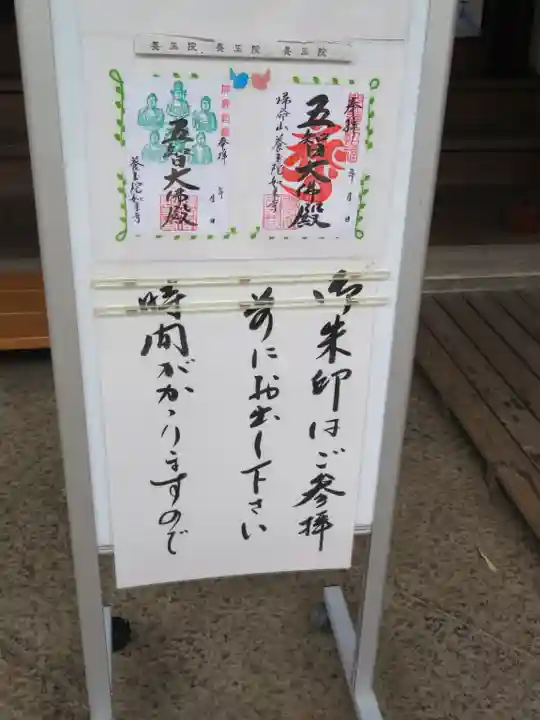 養玉院 養玉院 養玉院
奉拝
五智大佛殿
帰命山 養玉院 如来寺
年 月 日
奉拝
五智大佛殿
年 月 日
養玉院如来寺
御朱印はご参拝
前にお出し下さい
時間がかゝりますので